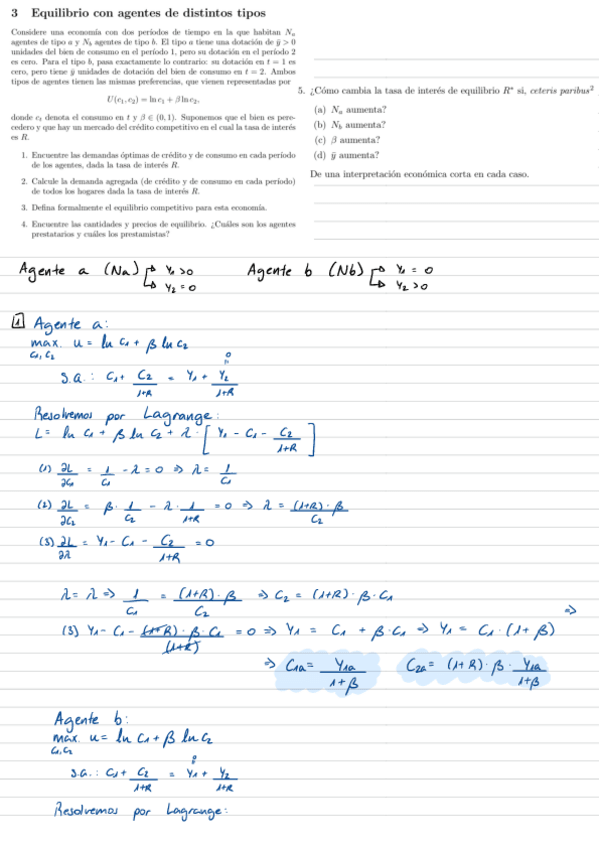 3 Equilibrio con agentes de distintos tipos
Considere una economía con dos períodos de tiempo en la que habitan Nₐ
agentes de tipo a y N_b agentes de tipo b. El tipo a tiene una dotación de ȳ > 0
unidades del bien de consumo en el período 1, pero su dotación en el período 2
es cero. Para el tipo b, pasa exactamente lo contrario: su dotación en t = 1 es
cero, pero tiene ȳ unidades de dotación del bien de consumo en t = 2. Ambos
tipos de agentes tienen las mismas preferencias, que vienen representadas por
U(c₁, c₂) = ln c₁ + β ln c₂,
donde cₜ denota el consumo en t y β ∈ (0, 1). Suponemos que el bien es pere-
cedero y que hay un mercado del crédito competitivo en el cual la tasa de interés
es R.
1. Encuentre las demandas óptimas de crédito y de consumo en cada período
de los agentes, dada la tasa de interés R.
2. Calcule la demanda agregada (de crédito y de consumo en cada período)
de todos los hogares dada la tasa de interés R.
3. Defina formalmente el equilibrio competitivo para esta economía.
4. Encuentre las cantidades y precios de equilibrio. ¿Cuáles son los agentes
prestatarios y cuáles los prestamistas?
5. ¿Cómo cambia la tasa de interés de equilibrio R* si, ceteris paribus²
(a) Nₐ aumenta?
(b) N_b aumenta?
(c) β aumenta?
(d) ȳ aumenta?
De una interpretación económica corta en cada caso.
Agente a (Na) → Y₁ >0 → Y₂ = 0
Agente b (Nb) → Y₁ = 0 → Y₂ >0
1 Agente a:
max. u = ln C₁ + β ln C₂
C₁, C₂
s.a.: C₁ + C₂/(1+R) = Y₁ + Y₂/(1+R) 0
Resolvemos por Lagrange:
L = ln C₁ + β ln C₂ + λ · [Y₁ - C₁ - C₂/(1+R)]
(1) ∂L/∂C₁ = 1/C₁ - λ = 0 ⇒ λ = 1/C₁
(2) ∂L/∂C₂ = β · 1/C₂ - λ · 1/(1+R) = 0 ⇒ λ = (1+R) · β/C₂
(3) ∂L/∂λ = Y₁ - C₁ - C₂/(1+R) = 0
λ = λ ⇒ 1/C₁ = (1+R) · β/C₂ ⇒ C₂ = (1+R) · β · C₁
⇒
(3) Y₁ - C₁ - (1+R) · β · C₁/(1+R) = 0 ⇒ Y₁ = C₁ + β · C₁ ⇒ Y₁ = C₁ · (1 + β)
⇒ C₁ₐ = Y₁ₐ/(1 + β) C₂ₐ = (1 + R) · β · Y₁ₐ/(1+β)
Agente b:
max. u = ln C₁ + β ln C₂
C₁, C₂
s.a.: C₁ + C₂/(1+R) = Y₁ 0 + Y₂/(1+R)
Resolvemos por Lagrange: